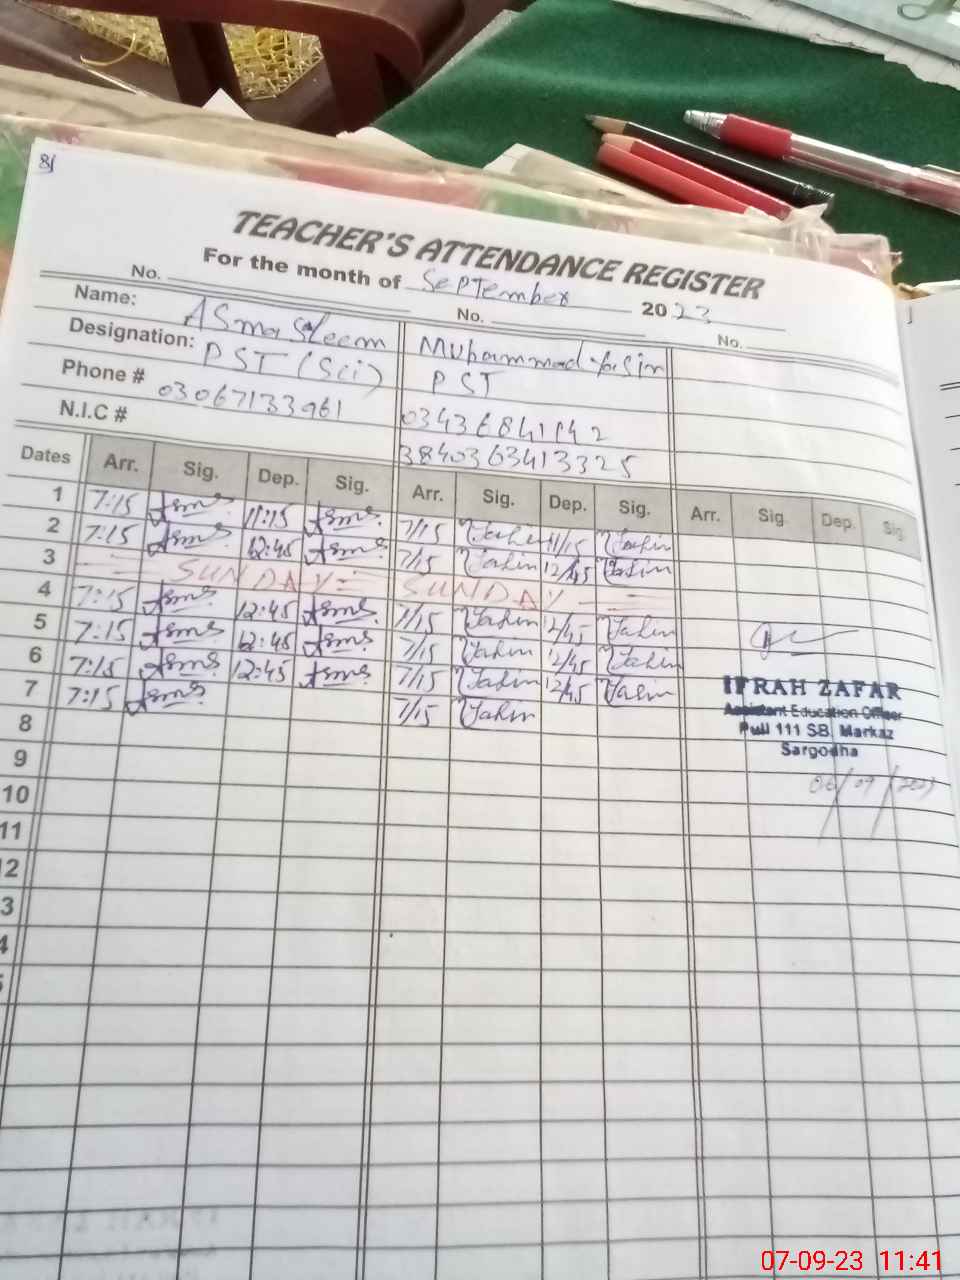 8/
TEACHER'S ATTENDANCE REGISTER
For the month of September 2023
No. No. No.
Name: Asma Sleem Muhammad Yasin
Designation: PST (Sci) PST
Phone # 03067133961
N.I.C # 3840363413325
Dates Arr. Sig. Dep. Sig. Arr. Sig. Dep. Sig. Arr. Sig. Dep. Sig.
1 7:15 Asma 11:15 Asma 7/15 Yasin 11/15 Yasin
2 7:15 Asma 12:45 Asma 7/15 Yasin 12/45 Yasin
3 SUNDAY SUNDAY
4 7:15 Asma 12:45 Asma 7/15 Yasin 12/45 Yasin
5 7:15 Asma 12:45 Asma 7/15 Yasin 12/45 Yasin
6 7:15 Asma 12:45 Asma 7/15 Yasin 12/45 Yasin
7 7:15 Asma 7/15 Yasin
8
9
10
11
12
3
4
IFRAH ZAFAR
Assistant Education Officer
Pull 111 SB, Markaz
Sargodha
06/09/2023
07-09-23 11:41